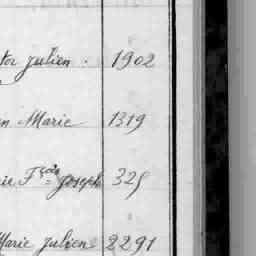 tor julien . 1902
en Marie 1319
rie Fçois Joseph 325
Marie julien 2291